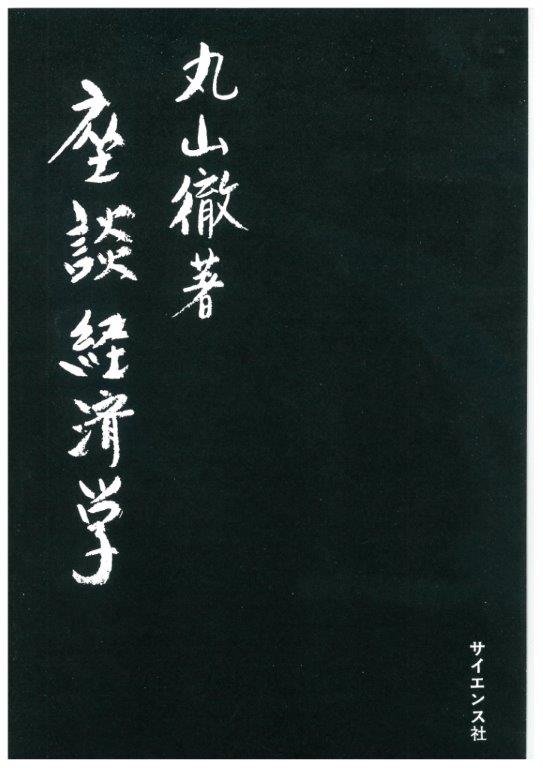 丸山徹著
座談経済学
サイエンス社